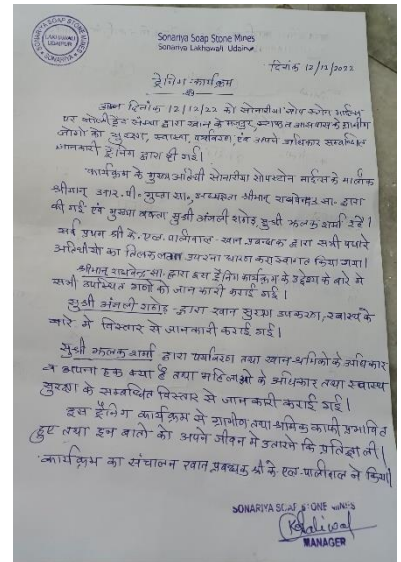 SONARIYA SOAP STONE MINES
LAKHAWALI
UDAIPUR
SONARIYA
Sonariya Soap Stone Mines
Sonariya Lakhawali Udaipur
दिनांक 12/12/2022
ट्रेनिंग कार्यक्रम
आज दिनांक 12/12/22 को सोनारीया सोप स्टोन माईन्स
पर संस्था द्वारा खान के मजदूर, आसपास के ग्रामीण
लोगों को सुरक्षा, स्वास्थ, पर्यावरण, एवं अपने अधिकार सम्बंधित
जानकारी ट्रेनिंग द्वारा दी गई।
कार्यक्रम के मुख्य अतिथी सोनारीया सोपस्टोन माईन्स के मालीक
श्रीमान् आर.पी. गुप्ता सा., अध्यक्षता श्रीमान् राघवेन्द्र सा. द्वारा
की गई एवं मुख्य वक्ता सुश्री अंजली राठोड़, सुश्री झलक शर्मा रहें।
सर्व प्रथम श्री के.एल.पालीवाल खान प्रबन्धक द्वारा सभी पधारे
अतिथीयों का तिलक लगा उपरणा धारण करा स्वागत किया गया।
श्रीमान् राघवेन्द्र सा. द्वारा इस ट्रेनिंग कार्यक्रम के उद्देश्य के बारे में
सभी उपस्थित को जानकारी कराई गई।
सुश्री अंजली राठोड़ द्वारा खान सुरक्षा उपकरण, स्वास्थ के
बारे में विस्तार से जानकारी कराई गई।
सुश्री झलक शर्मा द्वारा पर्यावरण तथा खान श्रमिकों के अधिकार
व अपना हक क्या है तथा महिलाओं के अधिकार तथा स्वास्थ
सुरक्षा के सम्बंधित विस्तार से जानकारी कराई गई।
इस ट्रेनिंग कार्यक्रम से ग्रामीण तथा श्रमिक काफी प्रभावित
हुए तथा इन बातों को अपने जीवन में उतारने कि प्रतिज्ञा ली।
कार्यक्रम का संचालन खान प्रबन्धक श्री के.एल.पालीवाल ने किया।
SONARIYA SOAP STONE MINES
MANAGER